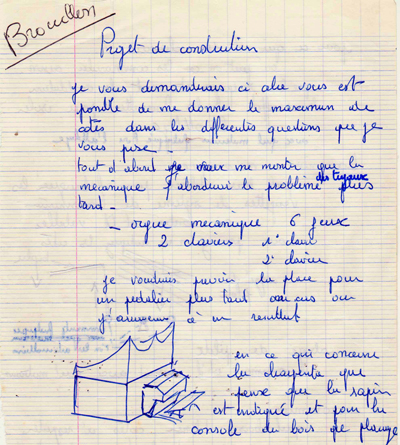 Brouillon
Projet de construction
Je vous demanderais ci alre vous est
possible de me donner le maximum de
cotés dans les differentes questions que je
vous pose -
tout d'abord je veux me monter que la
mecanique j'aborderai le problème des tuyaux plus
tard -
- orgue mecanique 6 jeux
2 claviers 1° clavier
2° clavier
je voudrais prevoir la place pour
un pedalier plus tard au cas ou
j'arriverais à un resultat
en ce qui concerne
la charpente que
pense que le sapin
est indiqué et pour la
console du bois de placage